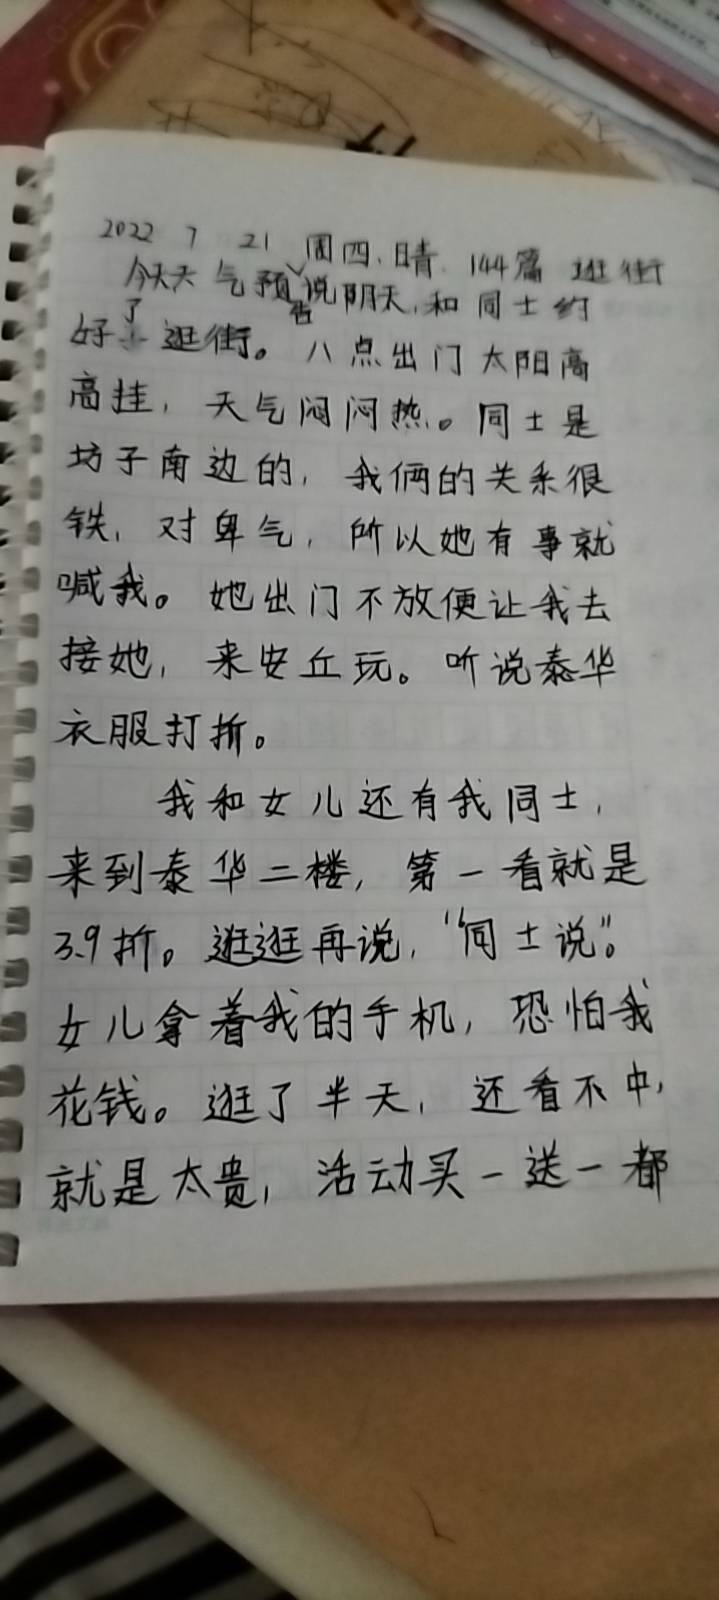 2022 7 21 周四.晴. 144篇 逛街
今天天气预告说阴天,和同士约
好了逛街。八点出门太阳高
高挂,天气闷闷热。同士是
坊子南边的,我俩的关系很
铁,对卑气,所以她有事就
喊我。她出门不放便让我去
接她,来安丘玩。听说泰华
衣服打折。
我和女儿还有我同士,
来到泰华二楼,第一看就是
3.9折。逛逛再说,“同士说”。
女儿拿着我的手机,恐怕我
花钱。逛了半天,还看不中,
就是太贵,活动买一送一都